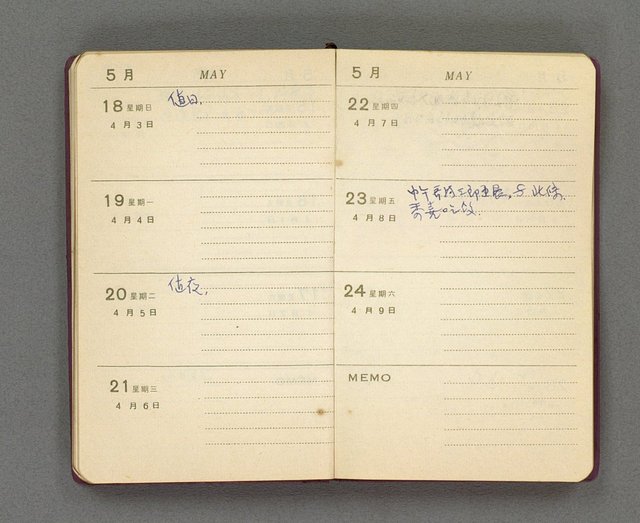 5月 MAY
18 星期日 值日.
4月3日
19 星期一
4月4日
20 星期二 值夜.
4月5日
21 星期三
4月6日
5月 MAY
22 星期四
4月7日
23 星期五 中午
4月8日 吃飯.
24 星期六
4月9日
MEMO